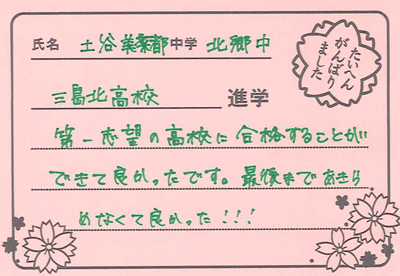 氏名 土谷 美都 中学 北郷中
たいへん
がんばり
ました
三島北高校 進学
第一志望の高校に合格することが
できて良かったです。最後まであきら
めなくて良かった!!!